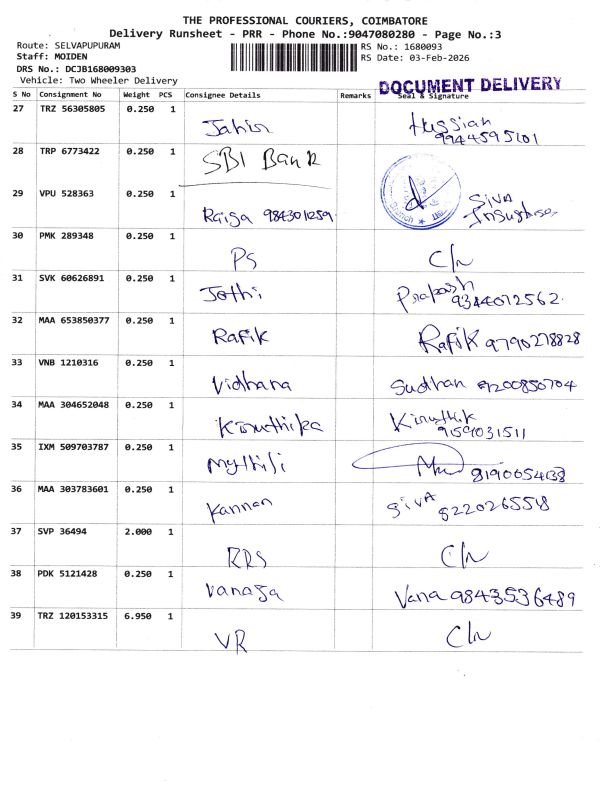 THE PROFESSIONAL COURIERS, COIMBATORE
Delivery Runsheet - PRR - Phone No.:9047080280 - Page No.:3
Route: SELVAPUPURAM
RS No.: 1680093
Staff: MOIDEN
RS Date: 03-Feb-2026
DRS No.: DCJB168009303
Vehicle: Two Wheeler Delivery
DOCUMENT DELIVERY
S No Consignment No Weight PCS Consignee Details Remarks Seal & Signature
27 TRZ 56305805 0.250 1 Jahir Hussian
28 TRP 6773422 0.250 1 SBI Bank
Branch
29 VPU 528363 0.250 1 Raiga SIVA
30 PMK 289348 0.250 1 PS C/n
31 SVK 60626891 0.250 1 Jothi Prakash
9344072562
32 MAA 653850377 0.250 1 Rafik Rafik 9790278828
33 VNB 1210316 0.250 1 Vidhana Sudhan 9200850704
34 MAA 304652048 0.250 1 Kiruthika Kiruthik
9159031511
35 IXM 509703787 0.250 1 Mythili
36 MAA 303783601 0.250 1 Kannan SIVA
37 SVP 36494 2.000 1 RRS C/n
38 PDK 5121428 0.250 1 Vanaja Vana 9843536489
39 TRZ 120153315 6.950 1 VR C/n